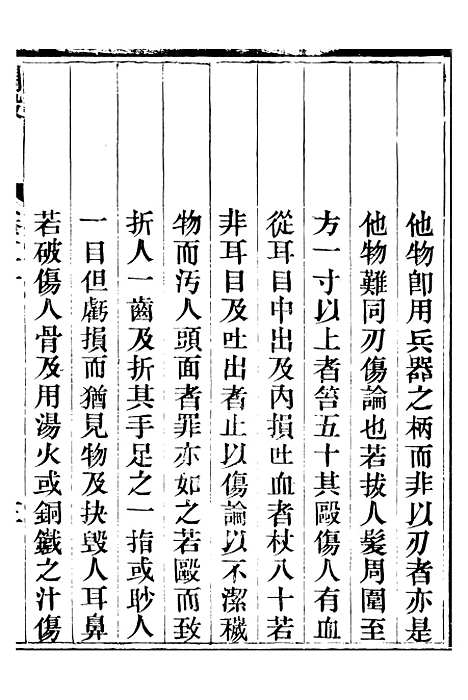 他物卽用兵器之柄而非以刃者亦是
他物難同刃傷論也若拔人髮周圍至
方一寸以上者笞五十其毆傷人有血
從耳目中出及內損吐血者杖八十若
非耳目及吐出者止以傷論以不潔穢
物而汚人頭面者罪亦如之若毆而致
折人一齒及折其手足之一指或眇人
一目但虧損而猶見物及抉毀人耳鼻
若破傷人骨及用湯火或銅鐵之汁傷